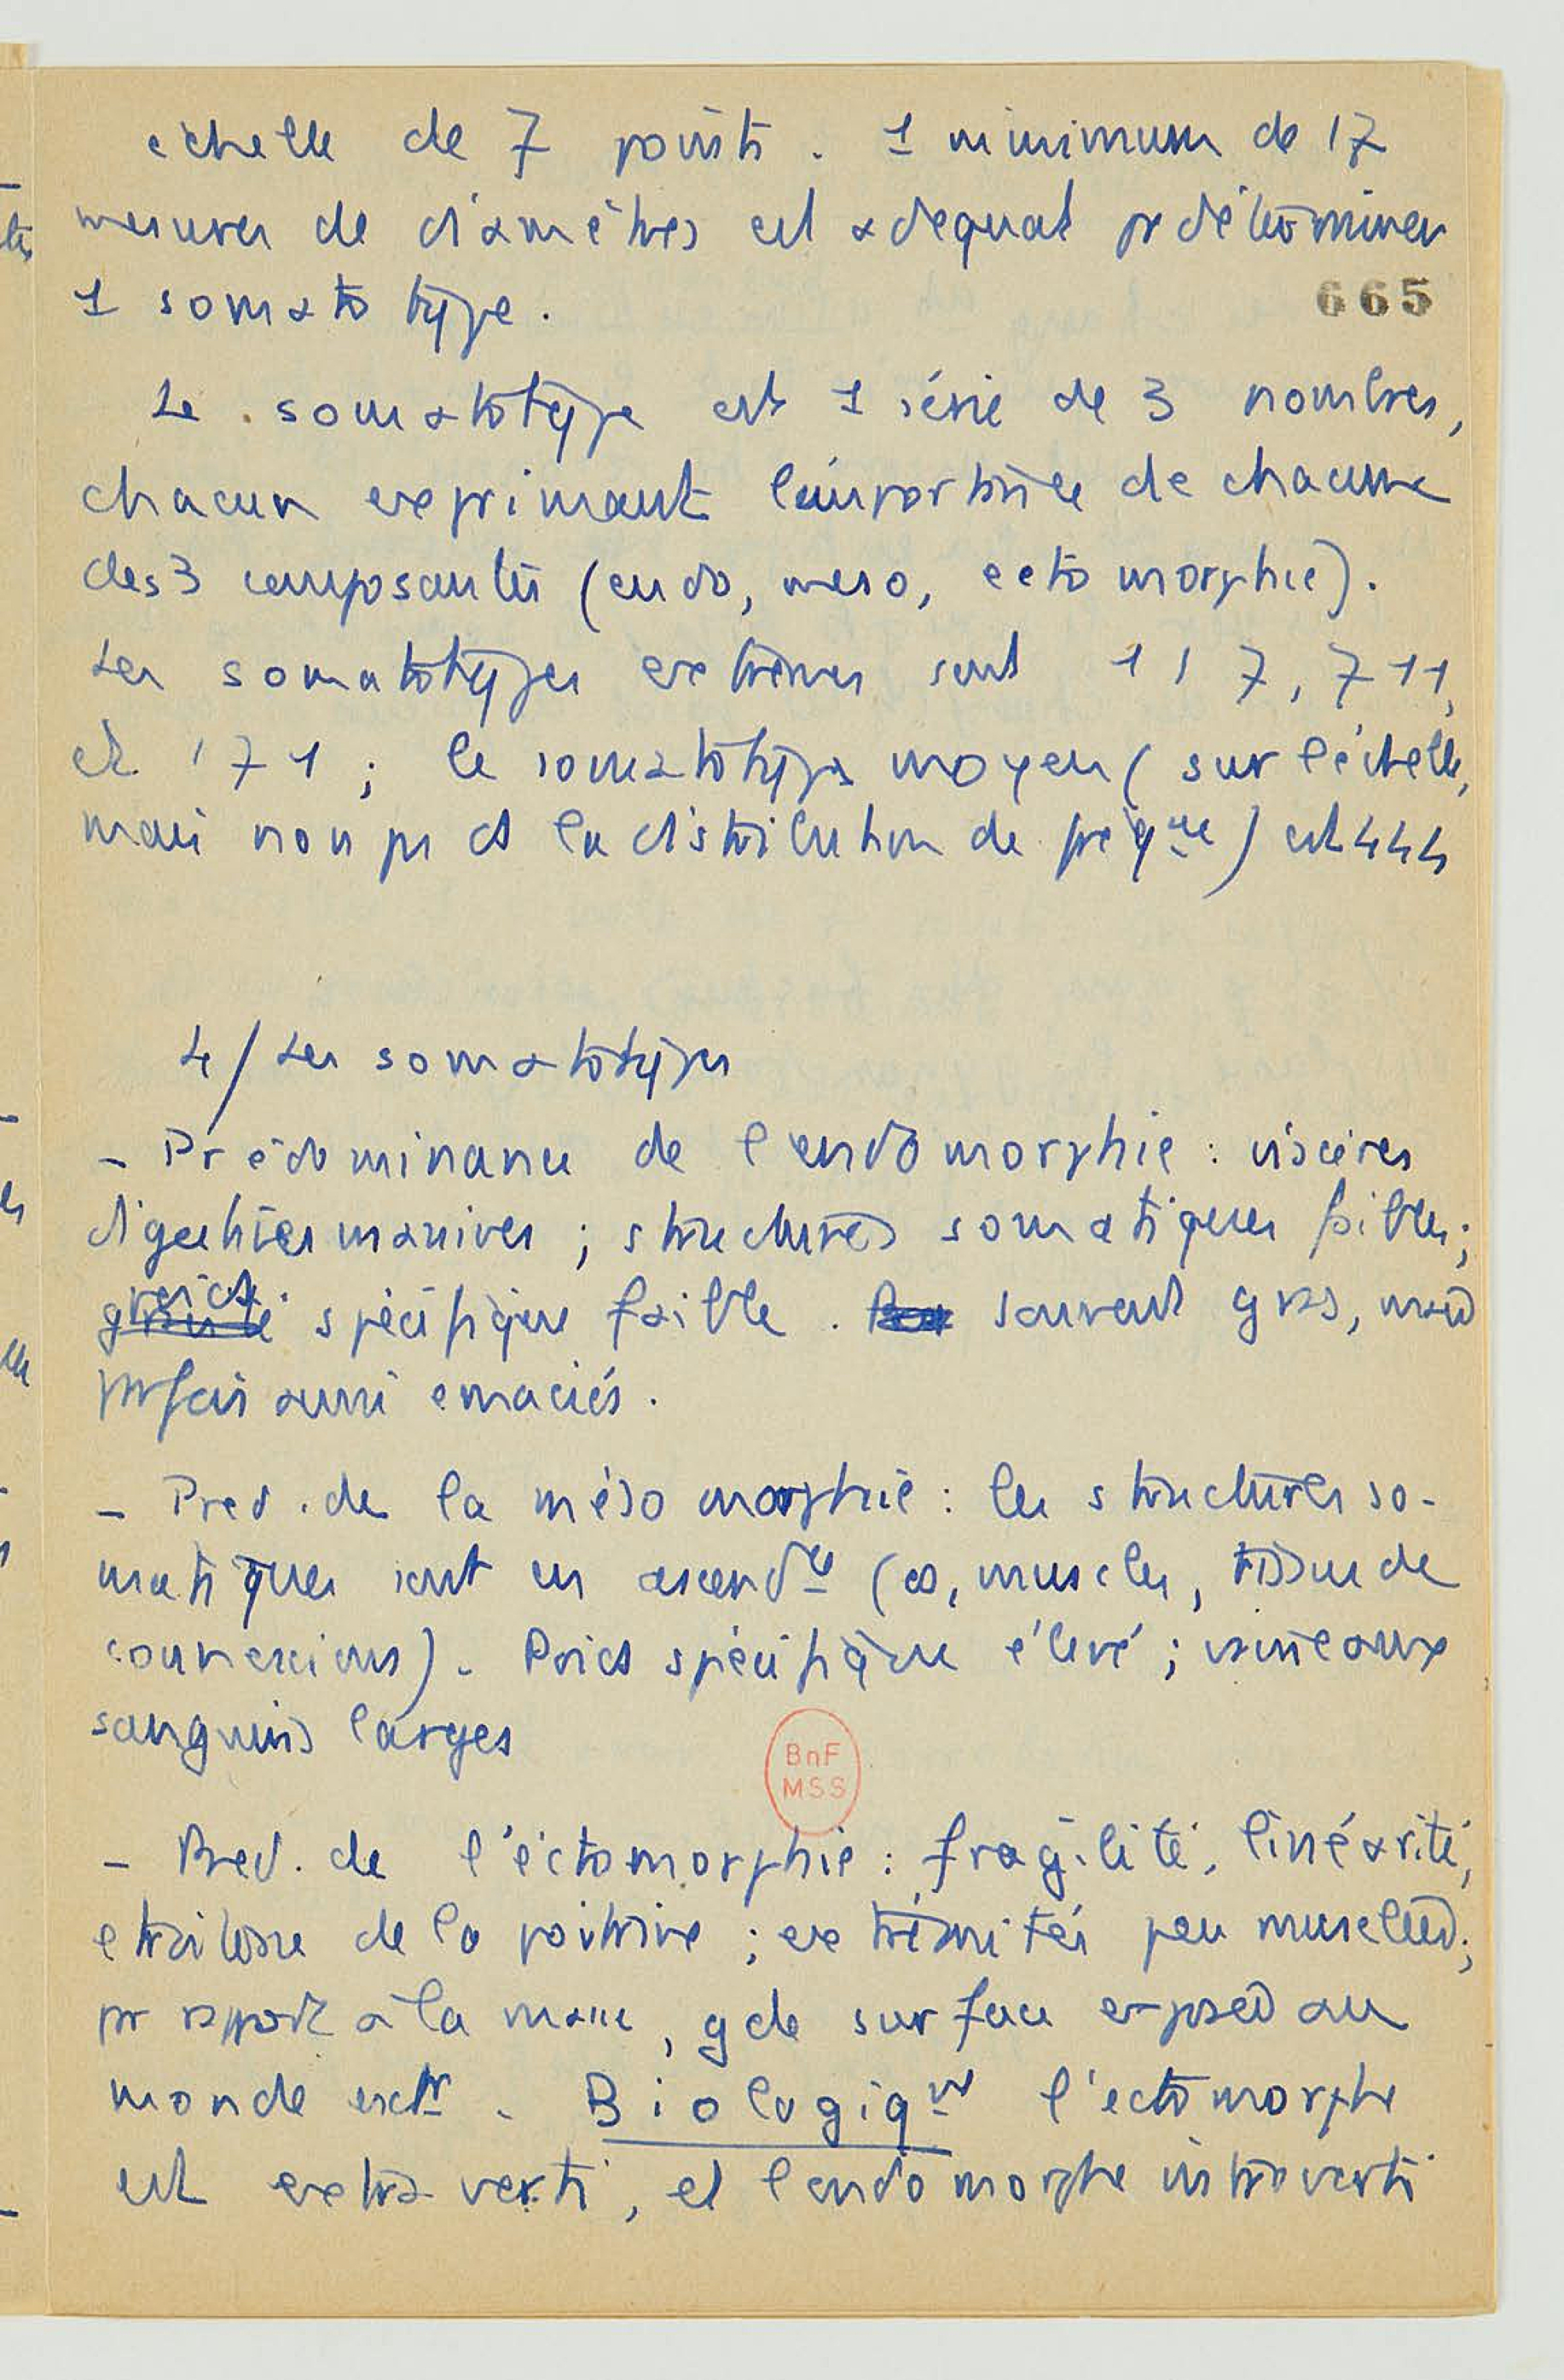 échelle de 7 points. 1 minimum de 17
mesures de diamètres est adequat pr déterminer
1 somatotype.
665
Le somatotype est 1 série de 3 nombres,
chacun exprimant l'importance de chacune
des 3 composantes (endo, meso, ectomorphie).
Les somatotypes extrêmes sont 1 1 7, 7 1 1,
et 1 7 1 ; le somatotype moyen (sur l'échelle,
mais non ps ds la distribution de fréqce) est 444
4/ Les somatotypes
- Prédominance de l'endomorphie : viscères
digestives massives ; structures somatiques faibles ;
poids spécifique faible. souvent gras, mais
parfois aussi emaciés.
- Pred. de la mésomorphie : les structures so-
matiques sont en ascendce (os, muscles, tissu de
connexions). Poids spécifique élevé ; vaisseaux
sanguins larges
BnF
MSS
- Pred. de l'éctomorphie : fragilité, linéarité,
etroitesse de la poitrine ; extrémités peu musclées ;
pr rapport à la masse, gde surface exposée au
monde extr. Biologiqt l'ectomorphe
est extraverti, et l'endomorphe introverti